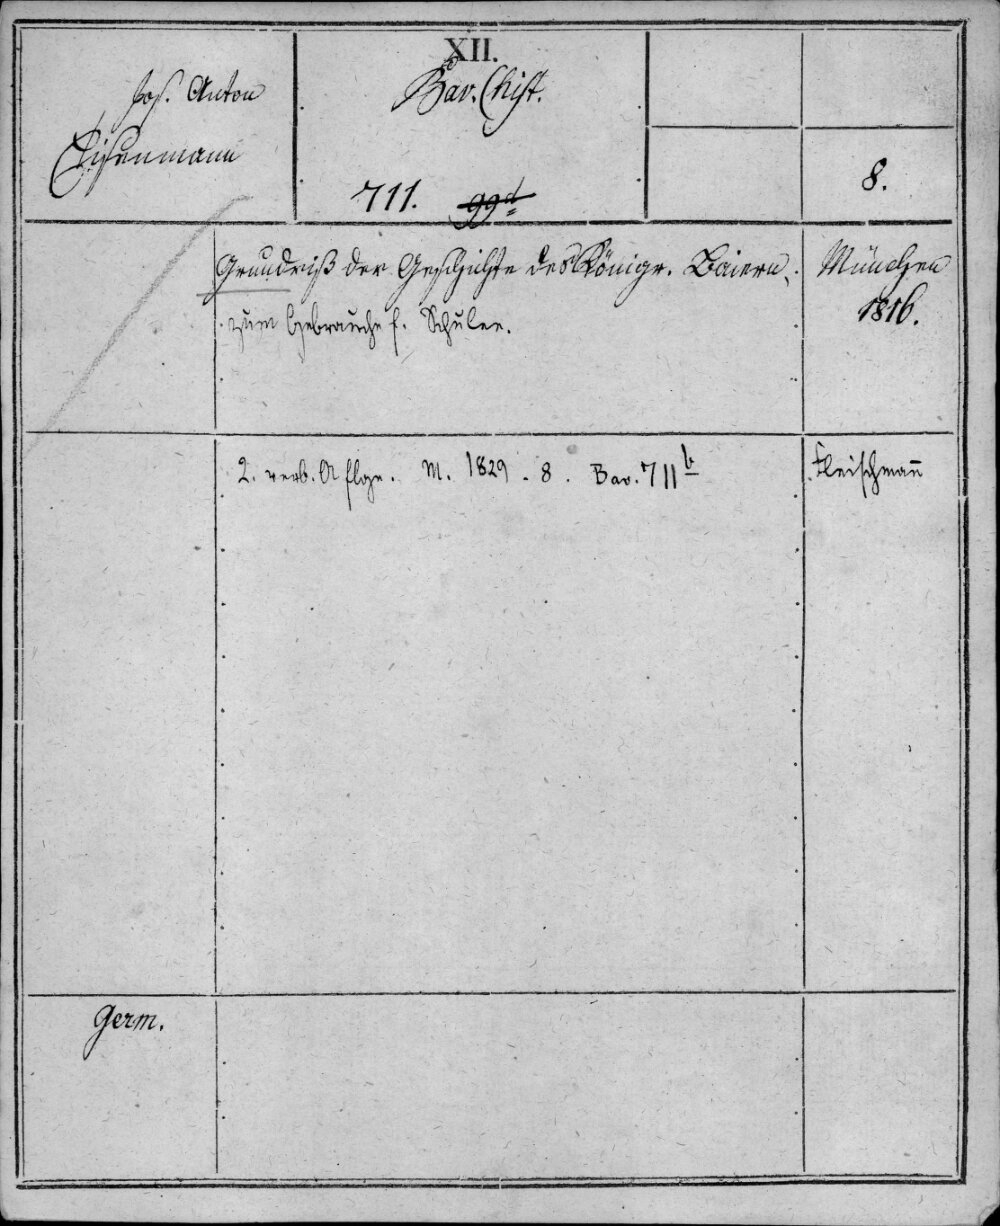 XII.
Jos. Anton
Eisenmann
Bav. Hist.
711. 99d
8.
Grundriß der Geschichte des Königr. Baiern,
zum Gebrauche f. Schulen.
München
1816.
2. verb. Aflge. M. 1829. 8. Bav. 711b
Fleischmañ
Germ.